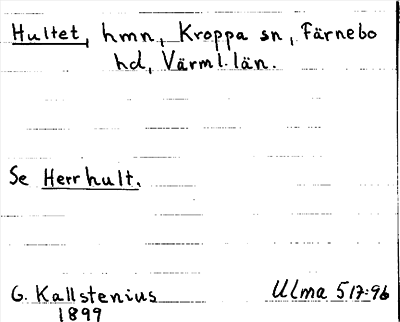 Hultet, hmn, Kroppa sn, Färnebo
hd, Värml. län.
Se Herrhult.
G. Kallstenius Ulma 517:96
1899